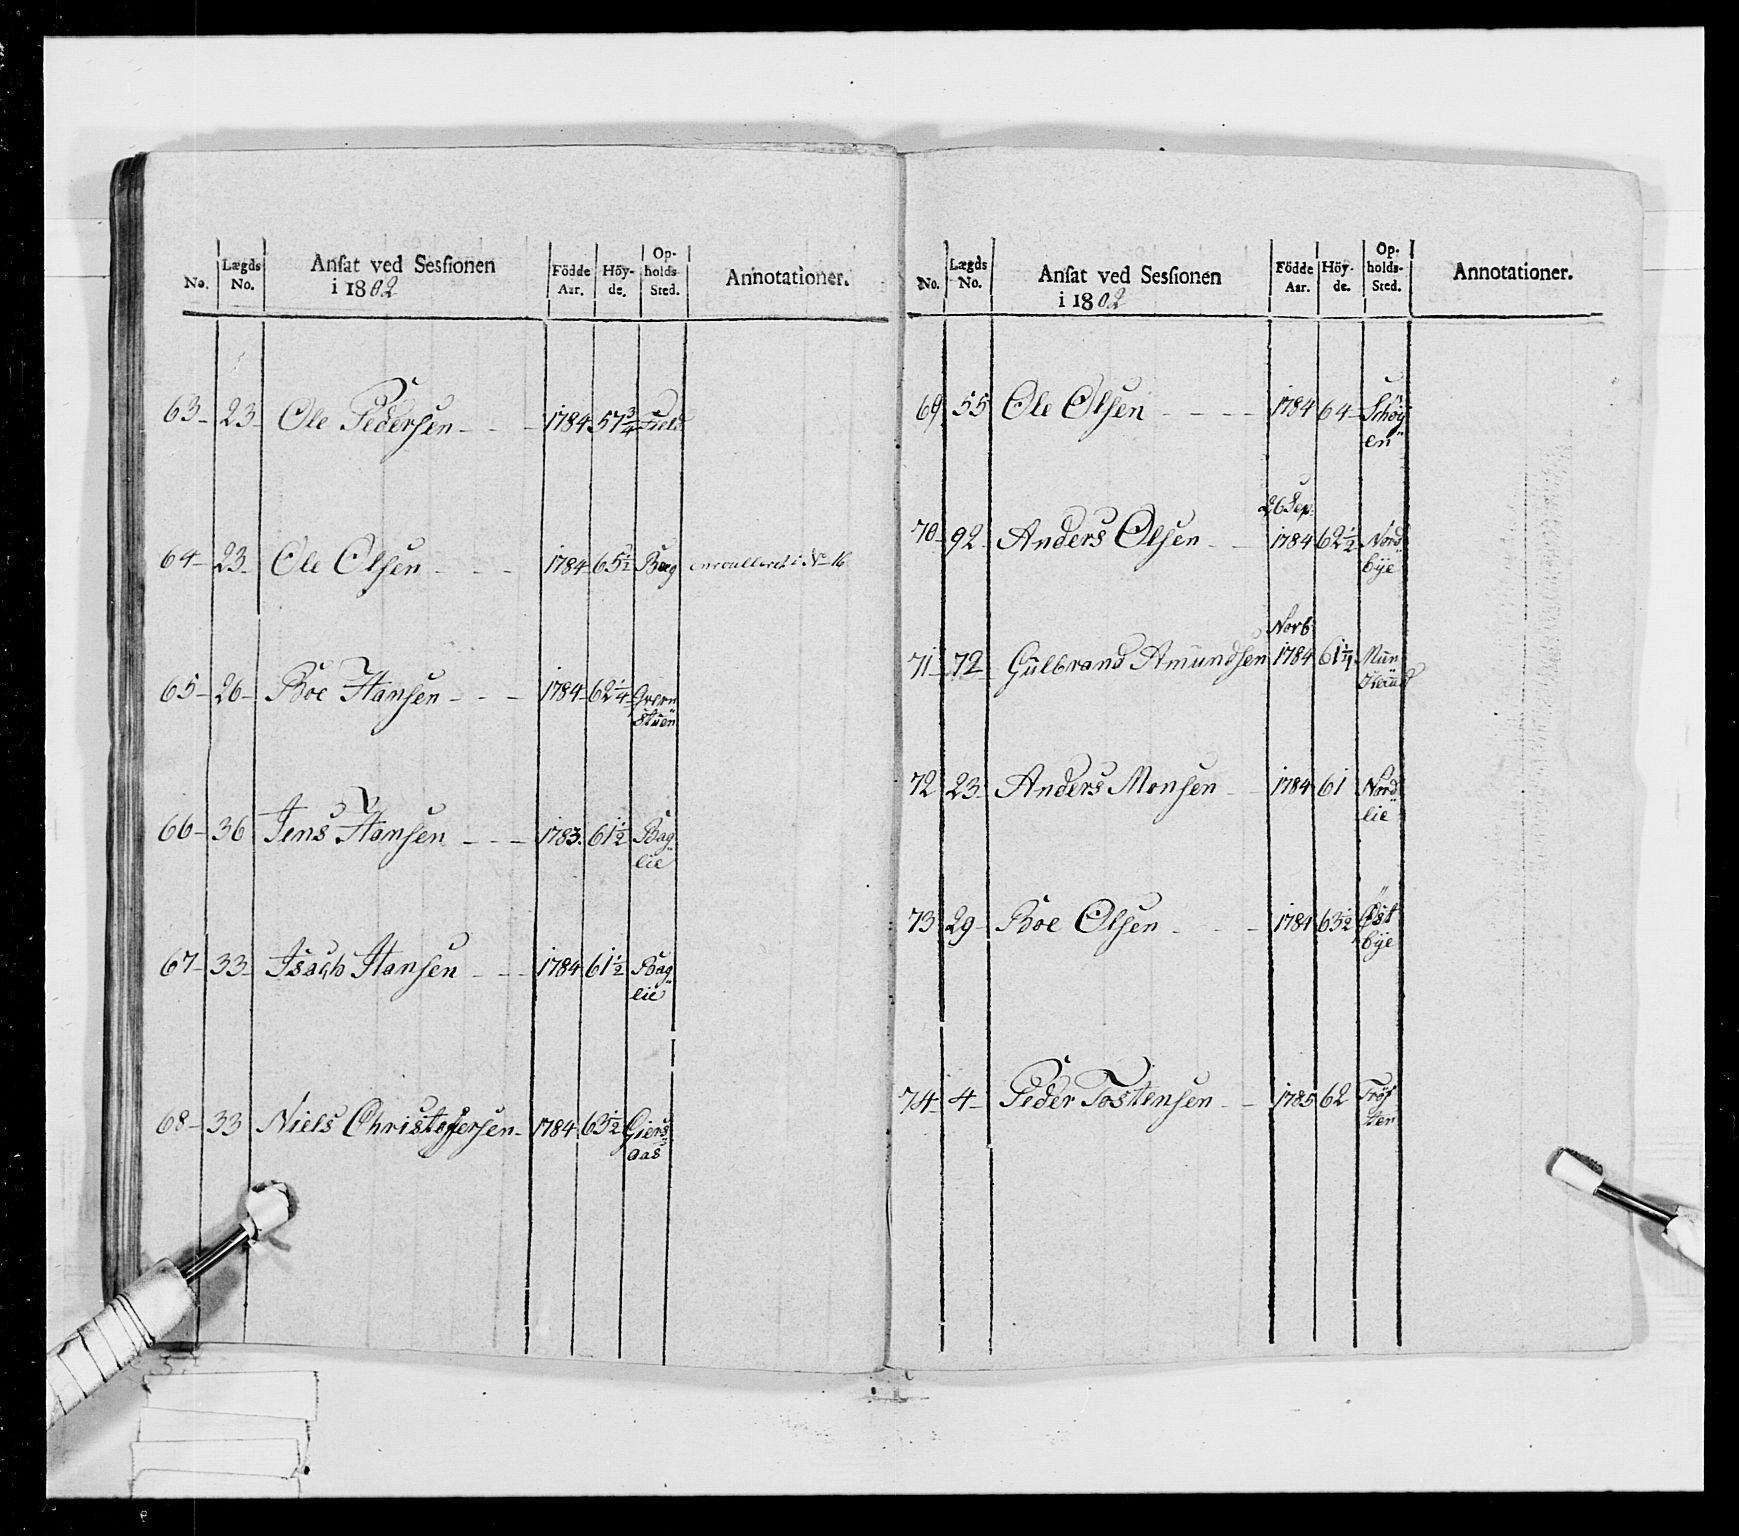 No. Lægds No. Ansat ved Sessionen i 1802 Födde Aar. Höyde. Opholds Sted. Annotationer.
63 - 23 - Ole Pedersen - - - 1784 57 3/4
64 - 23 - Ole Olsen - - - 1784 65 1/2 Berg enroulleret i No 16
65 - 26 - Boe Hansen - - - 1784 62 1/4 Green
stuen
66 - 36 Jens Hansen - - - 1783 61 1/2 Bag
lie
67 - 33 - Isach Hansen - - - 1784 61 1/2 Bag
lie
68 - 33 Niels Christofersen - 1784 63 1/2 Giers
aas
No. Lægds No. Ansat ved Sessionen i 1802 Födde Aar. Höy-de. Op-holds-Sted. Annotationer.
69 55 Ole Olsen - - - - 1784 64 - Schöy
en
26 Sep.
70 - 92 - Anders Olsen - - 1784 62 1/2 Nord
bÿe
Novb
71 - 72 - Gülbrand Amündsen 1784 61 1/4 Mün
72 23 - Anders Monsen - - 1784 61 Nord
lie
73 29 - Boe Olsen - - - 1784 63 1/2 Öst
bÿe
74 - 4 - Peder Tostensen - - 1785 62 Tröf
ter